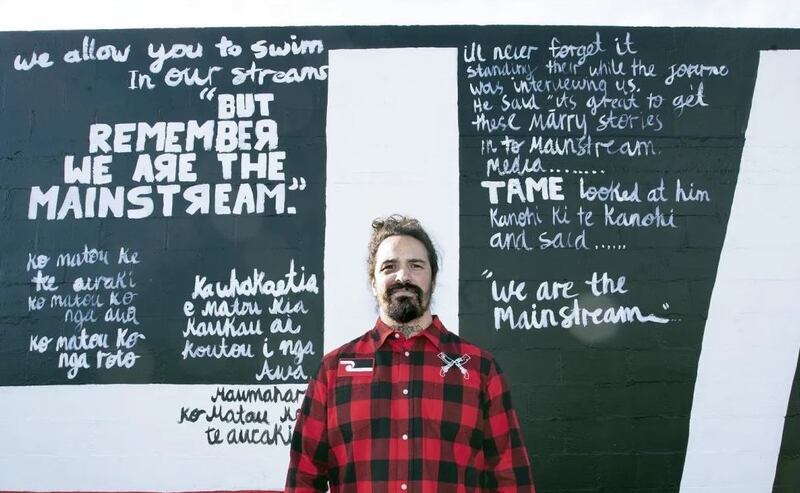 we allow you to swim
In our streams
"BUT
REMEMBER
WE ARE THE
MAINSTREAM."
ko matou ke
te auraki
ko matou ko
nga awa
ko matou ko
nga roto
Ka whakaetia
e matou kia
kaukau ai
koutou i nga
Awa
Maumahar
ko Matou ke
te auraki
ill never forget it
standing their while the journo
was interviewing us.
He said "its great to get
these Marry stories
in to Mainstream
Media........
TAME looked at him
Kanohi ki te Kanohi
and said......
"we are the
Mainstream"...